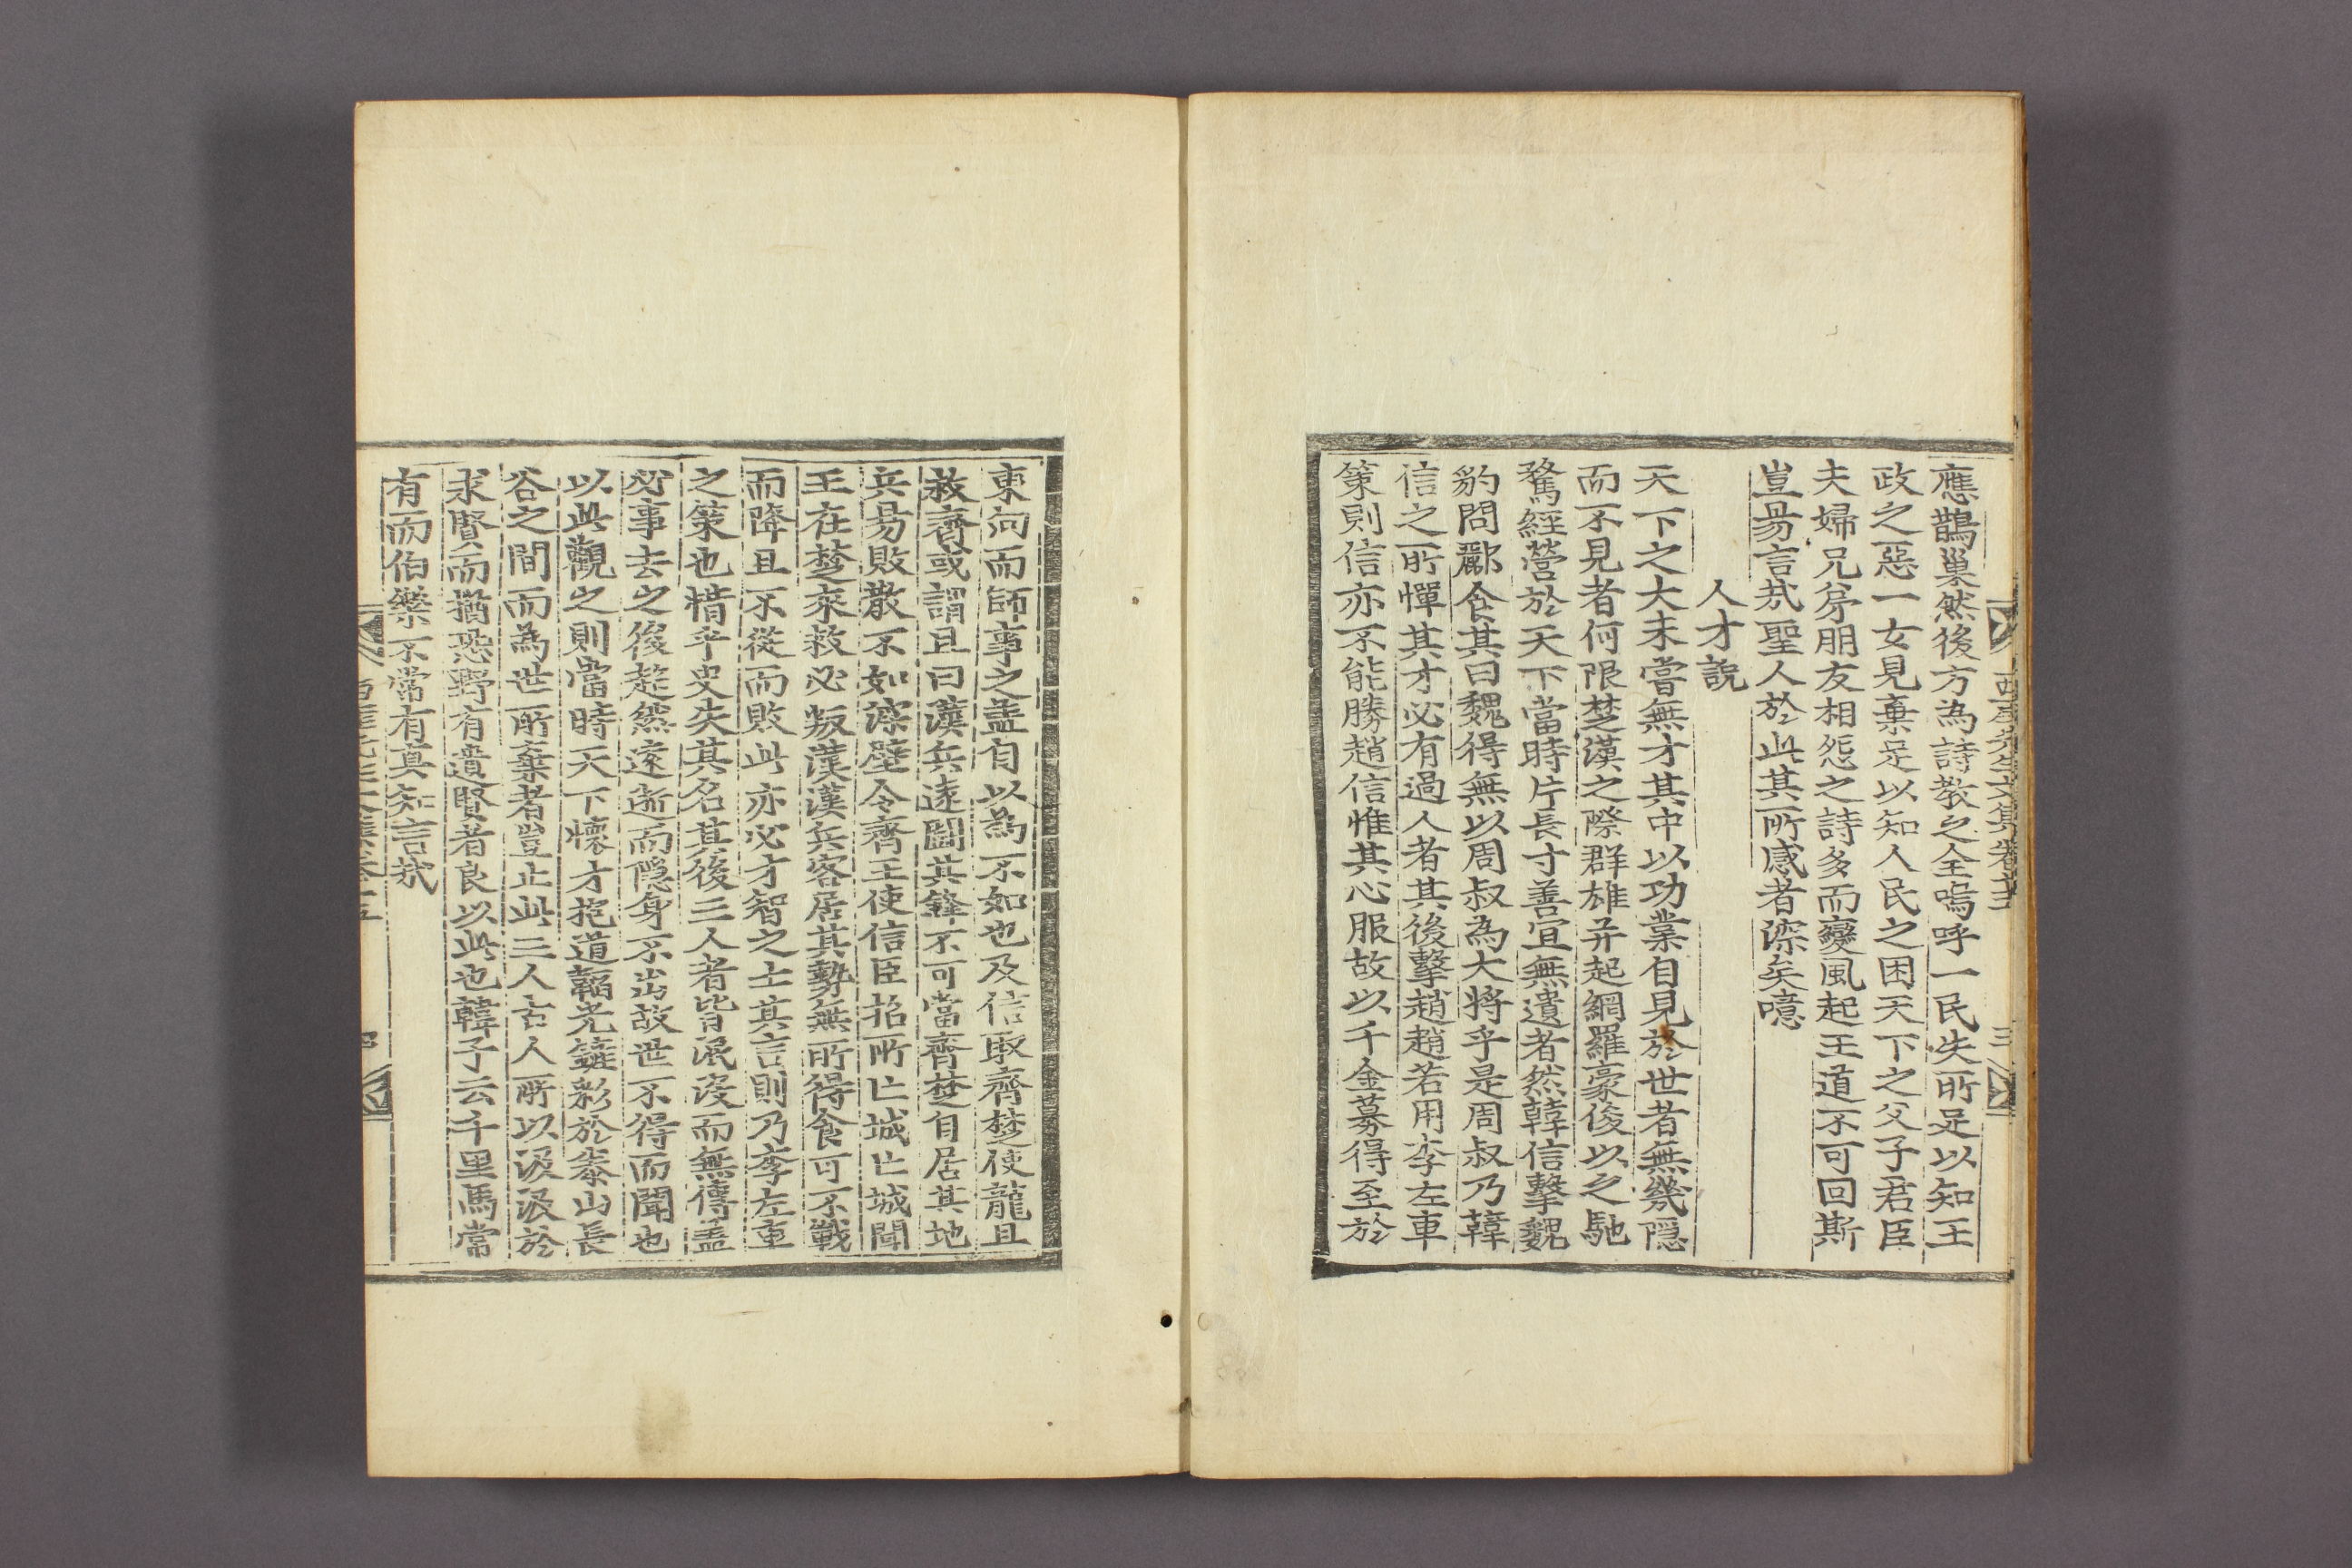 應鵲巢然後方為詩敎之全嗚呼一民失所足以知王
政之惡一女見棄足以知人民之困天下之父子君臣
夫婦兄弟朋友相怨之詩多而變風起王道不可回斯
豈易言哉聖人於此其所感者深矣噫
人才說
天下之大未嘗無才其中以功業自見於世者無幾隱
而不見者何限楚漢之際群雄并起網羅豪俊以之馳
騖經營於天下當時片長寸善宜無遺者然韓信擊魏
豹問酈食其曰魏得無以周叔為大將乎是周叔乃韓
信之所憚其才必有過人者其後擊趙趙若用李左車
策則信亦不能勝趙信惟其心服故以千金募得至於
東向而師事之盖自以為不如也及信取齊楚使龍且
救齊或謂且曰漢兵遠鬪其鋒不可當齊楚自居其地
兵易敗散不如深壁令齊王使信臣招所亡城亡城聞
王在楚來救必叛漢漢兵客居其勢無所得食可不戰
而降且不從而敗此亦必才智之士其言則乃李左車
之策也惜乎史失其名其後三人者皆泯沒而無傳盖
必事去之後超然遠逝而隱身不出故世不得而聞也
以此觀之則當時天下懷才抱道韜光鏟彩於泰山長
谷之間而為世所棄者豈止此三人古人所以汲汲於
求賢而猶恐野有遺賢者良以此也韓子云千里馬常
有而伯樂不常有眞知言哉
西厓先生文集卷十五 三
西厓先生文集卷十五 四